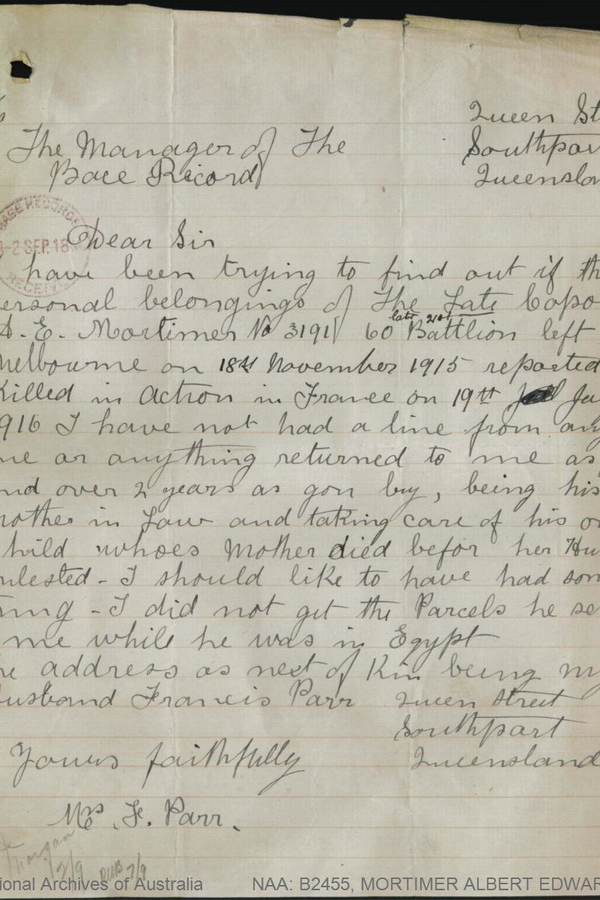 Queen St
The Manager of The
Southpor
Bace Record
Queenslan
BASE RECORDS
-2 SEP.18
RECEIVED
Dear Sir
have been trying to find out if th
ersonal belongings of The Late Copo
late 21st
A. E. Mortimer No 3191 60 Battlion left
Melbourne on 18th November 1915 reported
Killed in Action in France on 19th Ju
916 I have not had a line from any
ne or anything returned to me as
nd over 2 years as gon buy, being his
mother in Law and taking care of his on
hild whoes Mother died befor her Hu
nlested - I should like to have had som
thing - I did not get the Parcels he se
me while he was in Egypt
he address as next of Kin being my
usband Francis Parr Queen Street
Southport
Yours faithfully Queensland
Mrs. F. Parr.
2/9 7/9
ional Archives of Australia NAA: B2455, MORTIMER ALBERT EDWAR